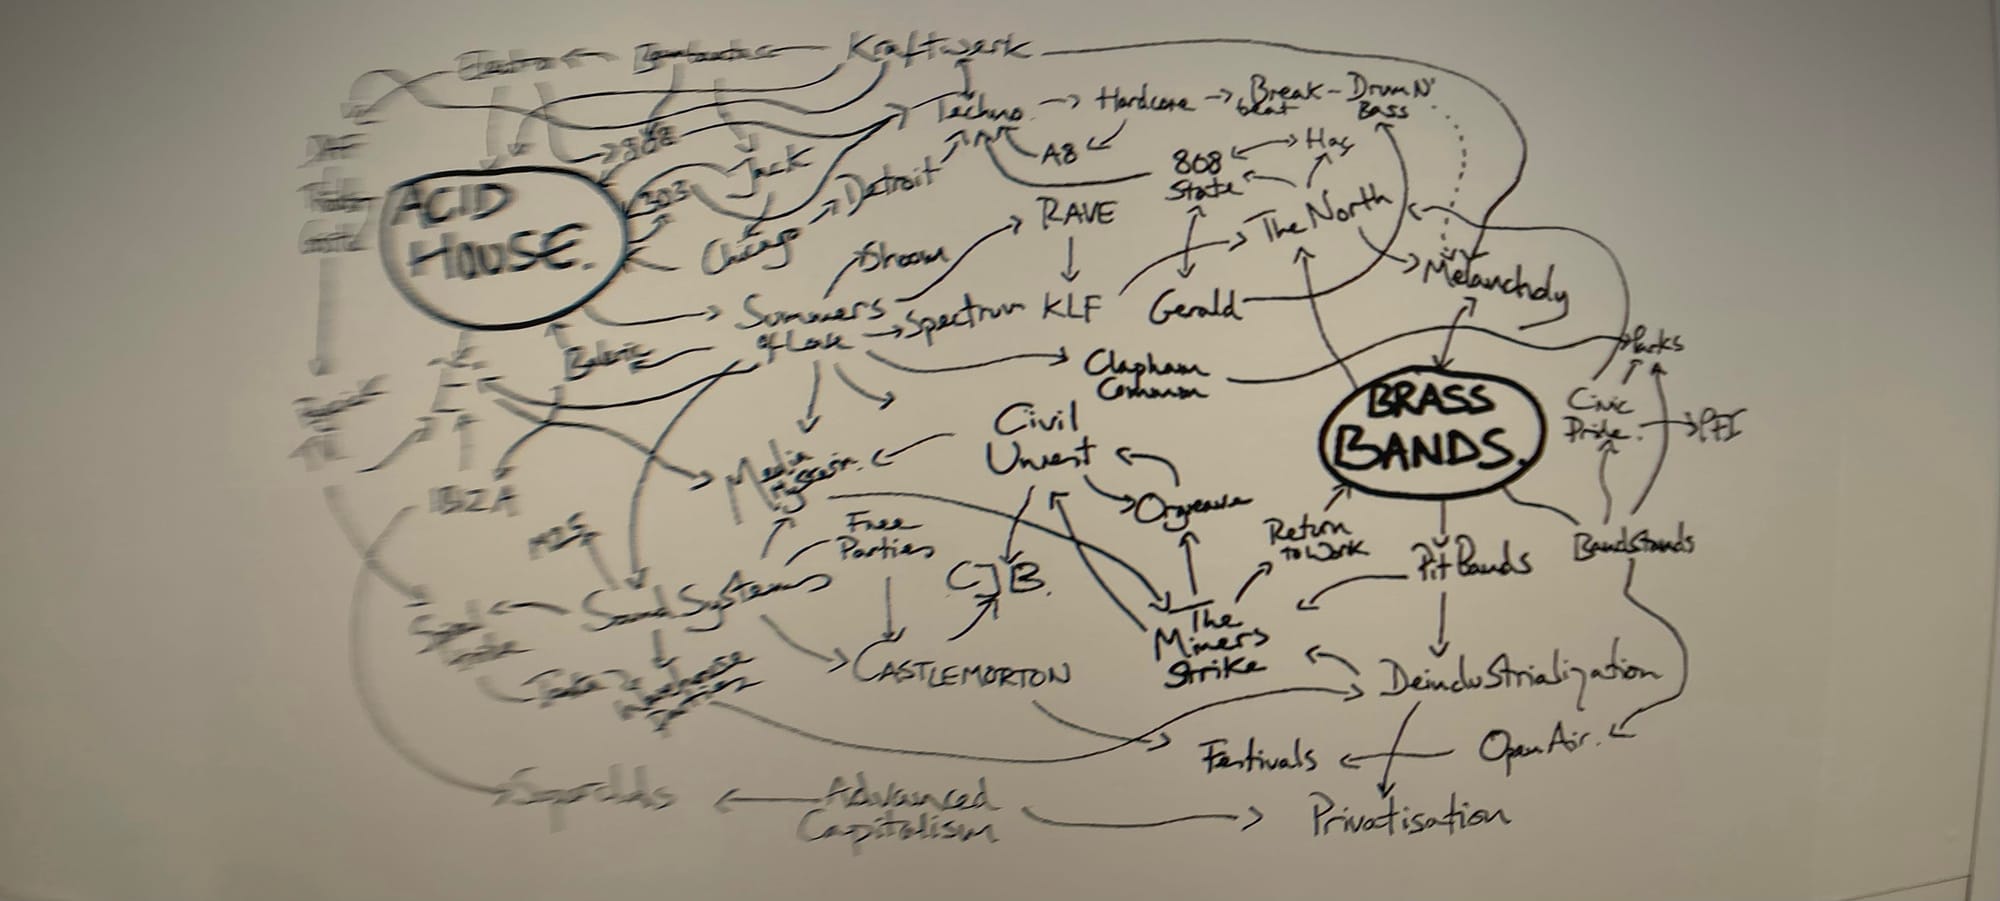 Electro
Kraftwerk
Techno
Hardcore
Break-
beat
Drum N'
Bass
A8
808
Jack
Detroit
808
State
Haç
303
ACID
HOUSE.
Chicago
RAVE
The North
Shoom
Melancholy
Summers
of Love
Spectrum
KLF
Gerald
Balearic
Clapham
Common
Parks
E
BRASS
BANDS.
Civic
Pride.
PFI
Civil
Unrest
Media
IBIZA
Orgreave
M25
Free
Parties
Return
to Work
Pit Bands
Bandstands
CJB.
Sound Systems
The
Miners
Strike
CASTLEMORTON
Deindustrialization
Warehouse
Parties
Festivals
Open Air.
Superclubs
Advanced
Capitalism
Privatisation